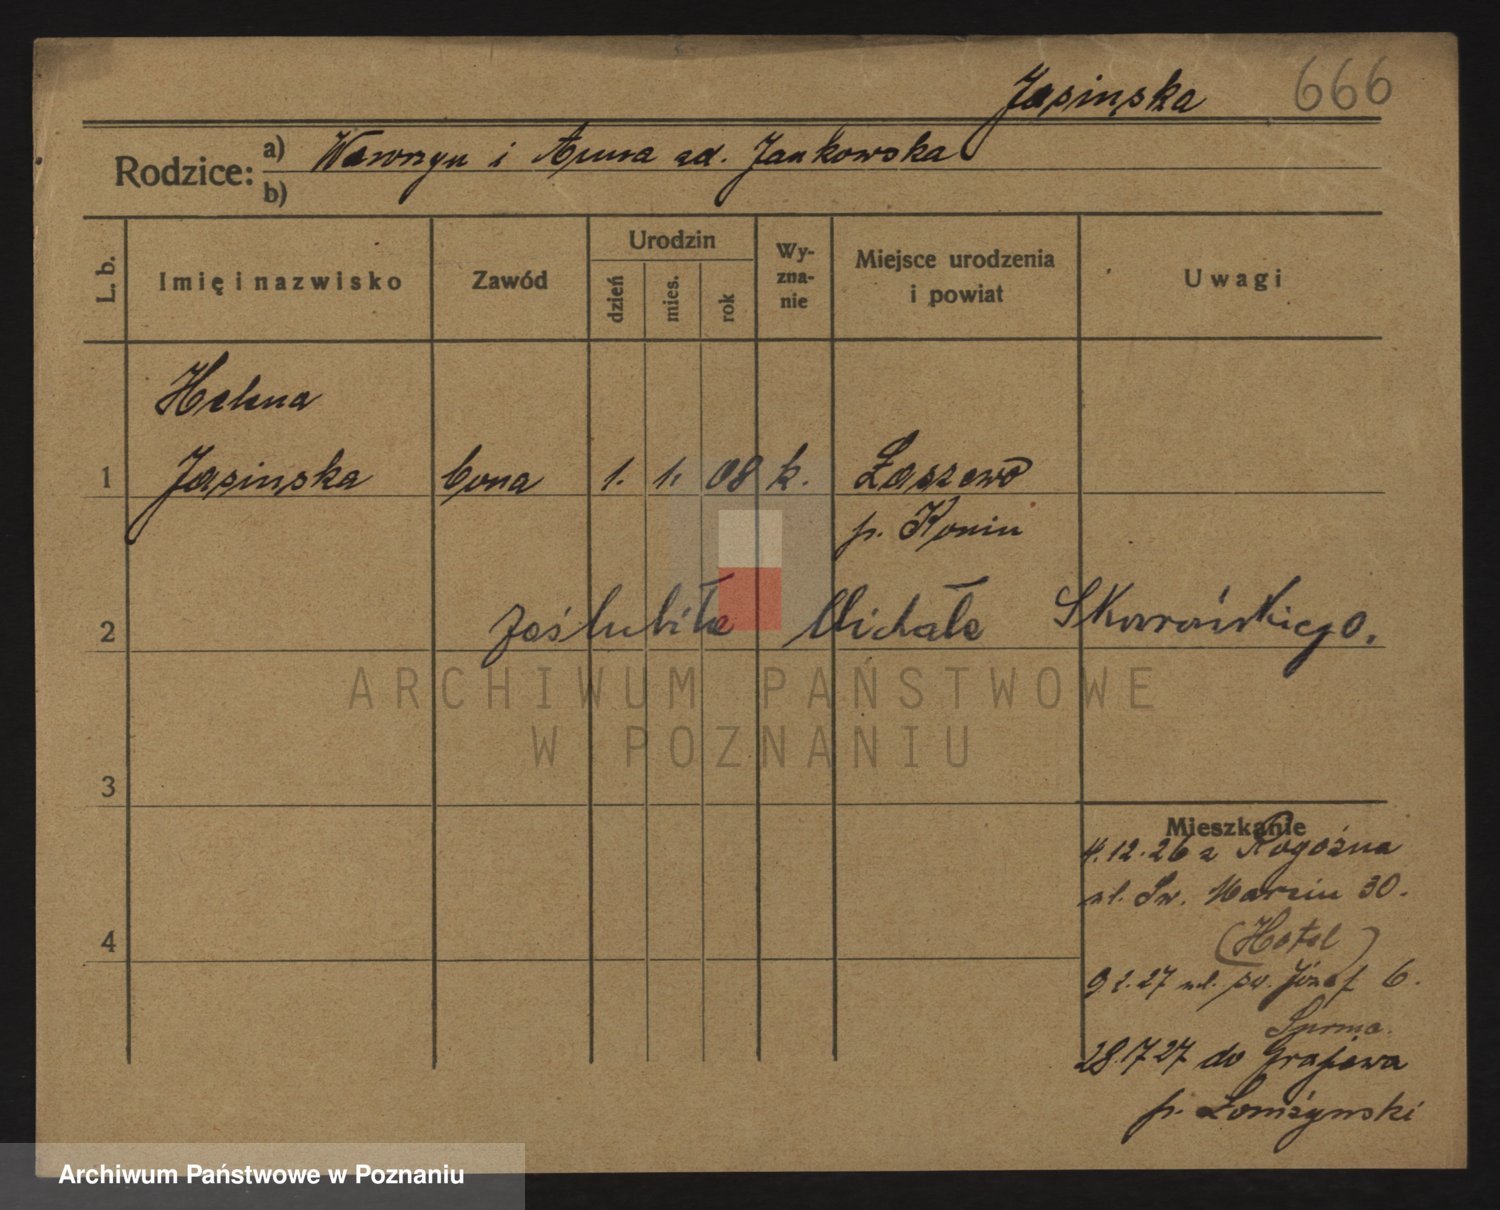 Jasinska 666
Rodzice: a) Wawrzyn i Anna zd. Jankowska
b)
L. b. Imię i nazwisko Zawód Urodzin dzień mies. rok Wy-zna-nie Miejsce urodzenia i powiat Uwagi
Helena
1 Jasinska bona 1. 1. 08 k. Łaszewo
p. Konin
2 zaślubiła Michała
ARCHIWUM PAŃSTWOWE
W POZNANIU
3
Mieszkanie
4.12.26 z Rogoźna
ul. Św. Marcin 30.
4 (Hotel)
9.2.27 ul. św. Józef 6.
28.1727 do Grajewa
p. Łomżynski
Archiwum Państwowe w Poznaniu